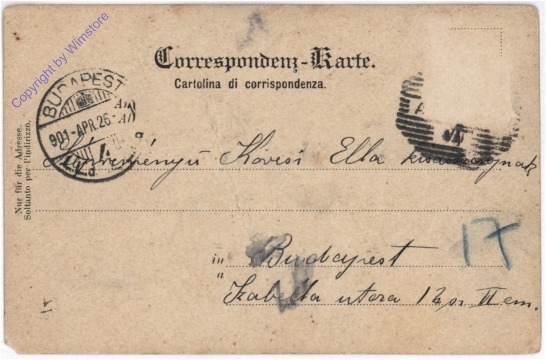 Correspondenz-Karte.
Cartolina di corrispondenza.
Copyright by Wimstore
BUDAPEST
901-APR.26
Nur für die Adresse.
Soltanto per l'indirizzo.
Kövesi Ella kisasszonynak
17
in Budapest
a
Izabella utcza II em.